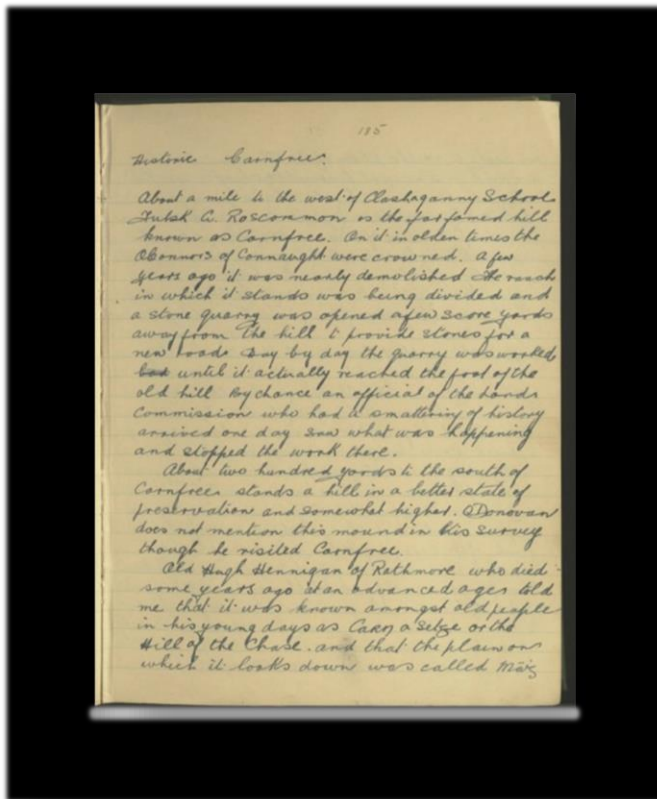 185
Historic Carnfree.
About a mile to the west of Clashaganny School
Tulsk Co. Roscommon is the far famed hill
known as Carnfree. On it in olden times the
O'Connors of Connaught were crowned. A few
years ago it was nearly demolished The ranch
in which it stands was being divided and
a stone quarry was opened a few score yards
away from the hill to provide stones for a
new road. Day by day the quarry was worked
until it actually reached the foot of the
old hill By chance an official of the Lands
Commission who had a smattering of history
arrived one day saw what was happening
and stopped the work there.
About two hundred yards to the south of
Carnfree stands a hill in a better state of
preservation and somewhat higher. O'Donovan
does not mention this mound in his survey
though he visited Carnfree.
Old Hugh Hennigan of Rathmore who died
some years ago at an advanced age told
me that it was known amongst old people
in his young days as Carn a Selge or the
Hill of the Chase. and that the plain on
which it looks down was called Maig